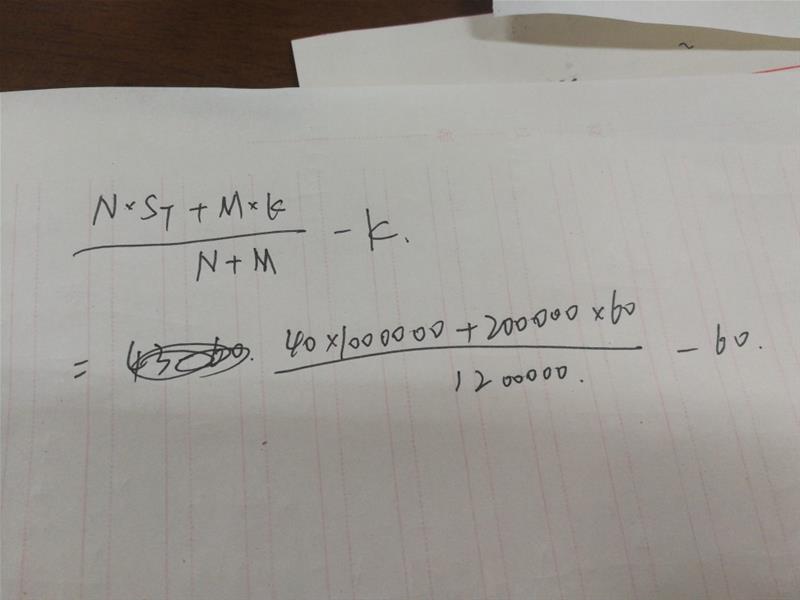 N×S_T + M×K / N+M - K.
= 40×1000000 + 200000×60 / 1200000. - 60.